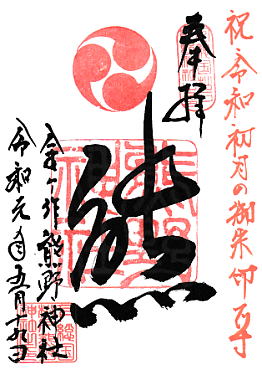 祝令和初月の御朱印
奉拝
熊
熊野神社
金ヶ作熊野神社
令和元年五月十九日